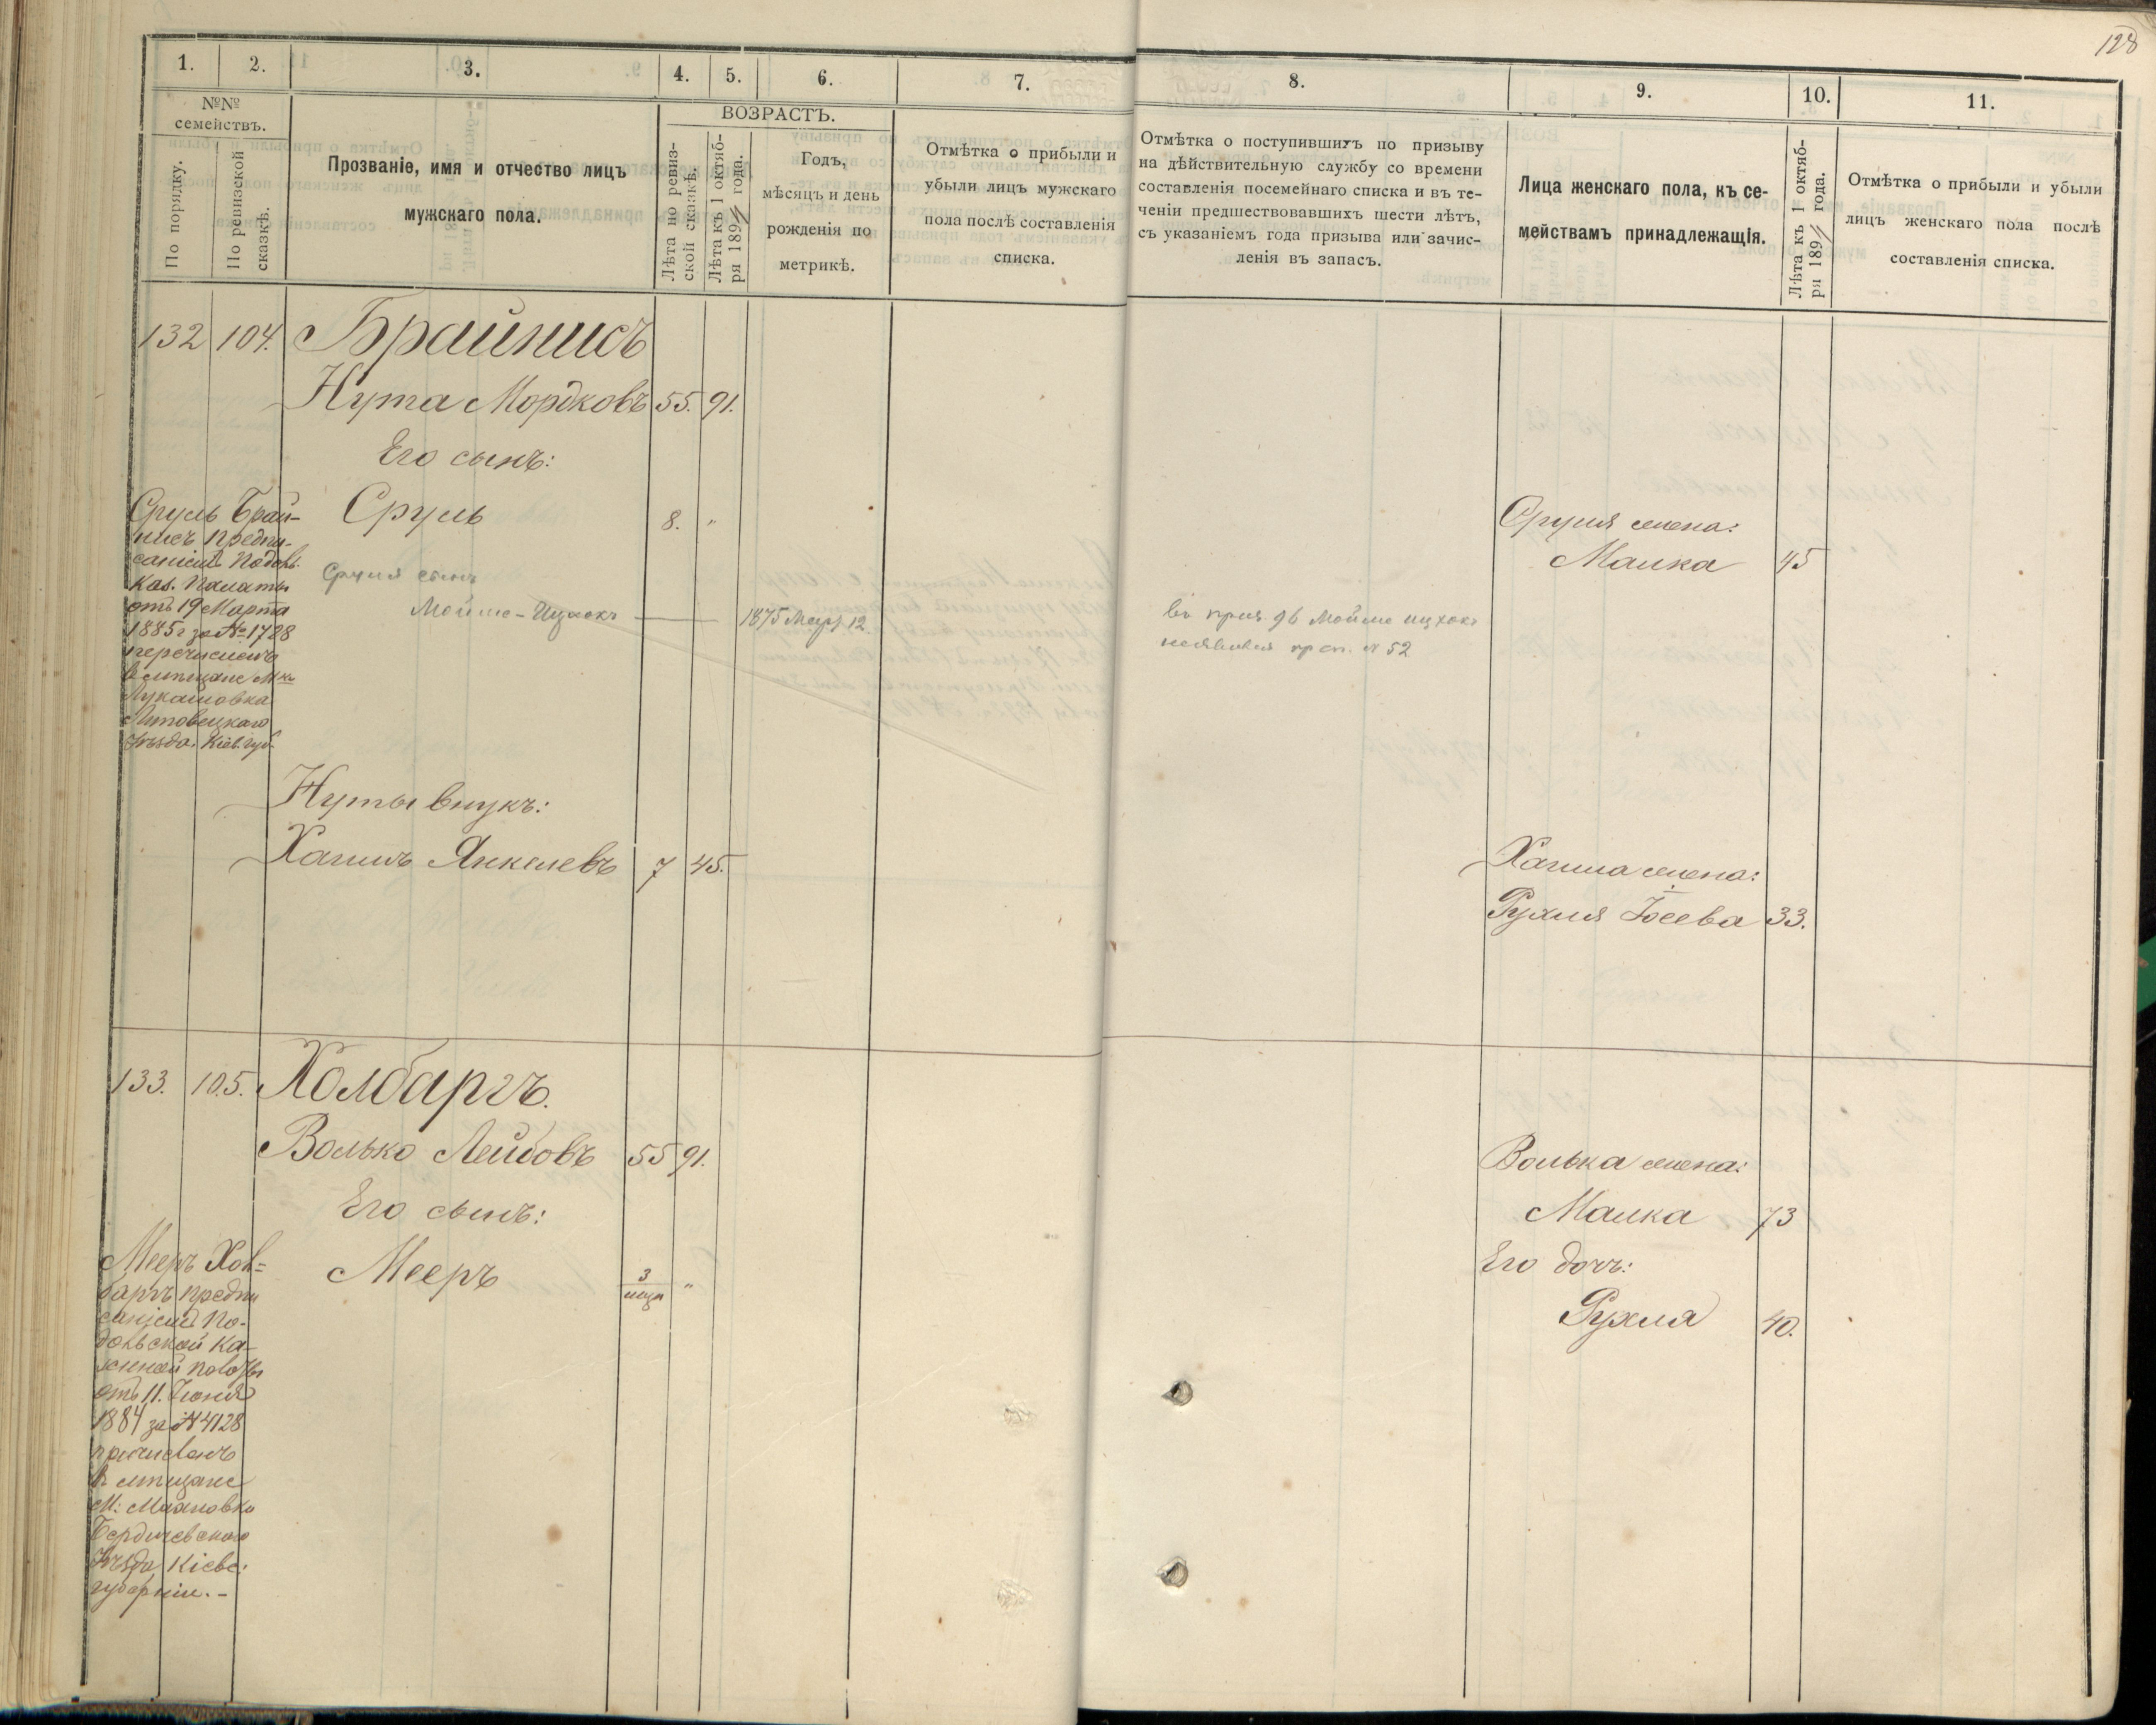 128
1.
2.
3.
4.
5.
6.
7.
8.
9.
10.
11.
№№
семействъ.
По порядку.
По ревизской
сказкѣ.
Прозваніе, имя и отчество лицъ
мужскаго пола.
ВОЗРАСТЪ.
Лѣта по ревиз-
ской сказкѣ.
Лѣта къ 1 октяб-
ря 189 года.
Годъ,
мѣсяцъ и день
рожденія по
метрикѣ.
Отмѣтка о прибыли и
убыли лицъ мужскаго
пола послѣ составленія
списка.
Отмѣтка о поступившихъ по призыву
на дѣйствительную службу со времени
составленія посемейнаго списка и въ те-
ченіи предшествовавшихъ шести лѣтъ,
съ указаніемъ года призыва или зачис-
ленія въ запасъ.
Лица женскаго пола, къ се-
мействамъ принадлежащія.
Лѣта къ 1 октяб-
ря 189 года.
Отмѣтка о прибыли и убыли
лицъ женскаго пола послѣ
составленія списка.
132 104. Брайнисъ
Нута Мордковъ 55. 91.
Его сынъ:
Сруль 8. "
Сруль Брай-
нисъ предпи-
саніемъ Подоль.
Каз. Палаты
отъ 19 Марта
1885 г за № 1728
перечисленъ
в мѣщане Мка
Лукашовка
Липовецкаго
Уѣзда. Кіев. губ.
Сруля сынъ
Мойше-Ицхокъ 1875 Мар. 12
въ приз. 96 Мойше ицхокъ
неявился пр сп. № 52
Сруля жена:
Малка 45
Нуты внукъ:
Хаимъ Янкелевъ 7 45.
Хаима жена:
Рухля Іосева 33.
133. 105. Холбаргъ.
Волько Лейбовъ 55 91.
Его сынъ:
Мееръ 3 "
Мееръ Хол-
баргъ предпи
саніемъ По-
дольской Ка-
зенной
отъ 11. Іюня
1884 за № 4128
причисленъ
в мѣщане
М:
Бердичевскаго
Уѣзда, Кіевс:
губерніи. -
Волька жена:
Малка 73
Его дочь:
Рухля 40.